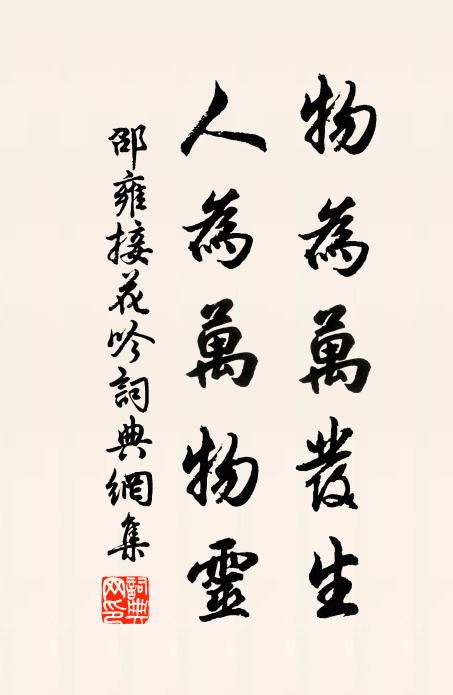 物為萬發生
人為萬物靈
邵雍接花吟詞典網集
詞典網印